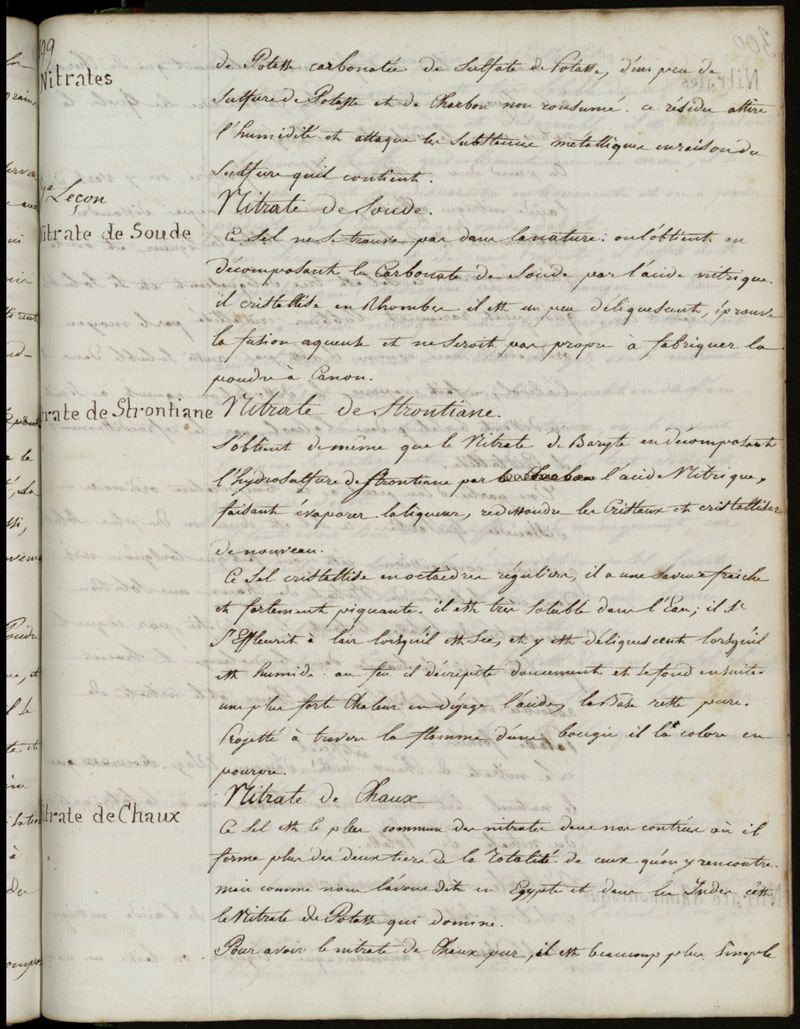 99
Nitrates
de Potasse carbonatée de Sulfate de Potasse, d'un peu de
Sulfure de Potasse et de Charbon non consumé. ce résidu attire
l'humidité et attaque les Substances métalliques en raison du
Sulfure qu'il contient.
Leçon
Nitrate de Soude.
itrate de Soude
Ce Sel ne se trouve pas dans la nature: on l'obtient en
décomposant le Carbonate de Soude par l'acide nitrique.
il cristallise en Rhombes. il est un peu déliquescent, éprouve
la fusion aqueuse et ne seroit pas propre a fabriquer la
poudre à Canon.
trate de Strontiane
Nitrate de Strontiane.
S'obtient de même que le Nitrate de Baryte en décomposant
l'hydrosulfure de Strontiane par le Charbon l'acide Nitrique,
faisant évaporer la liqueur, redissoudre les Cristaux et cristalliser
de nouveau.
Ce Sel cristallise en octaedres réguliers, il a une saveur fraiche
et fortement piquante. il est très soluble dans l'Eau; il s'
s'Effleurit à l'air lorsqu'il est sec, et y est déliquescent lorsqu'il
est humide. au feu il décrépite doucement et se fond ensuite.
une plus forte Chaleur en dégage l'acide, la Base reste pure.
Projetté à travers la flamme d'une bougie il la colore en
pourpre.
Nitrate de Chaux
itrate de Chaux
Ce Sel est le plus commun des nitrates dans nos contrées où il
forme plus des deux tiers de la totalité de ceux qu'on y rencontre.
mais comme nous l'avons dit en Egypte et dans les Indes c'est
le Nitrate de Potasse qui domine.
Pour avoir le nitrate de Chaux pur, il est beaucoup plus Simple